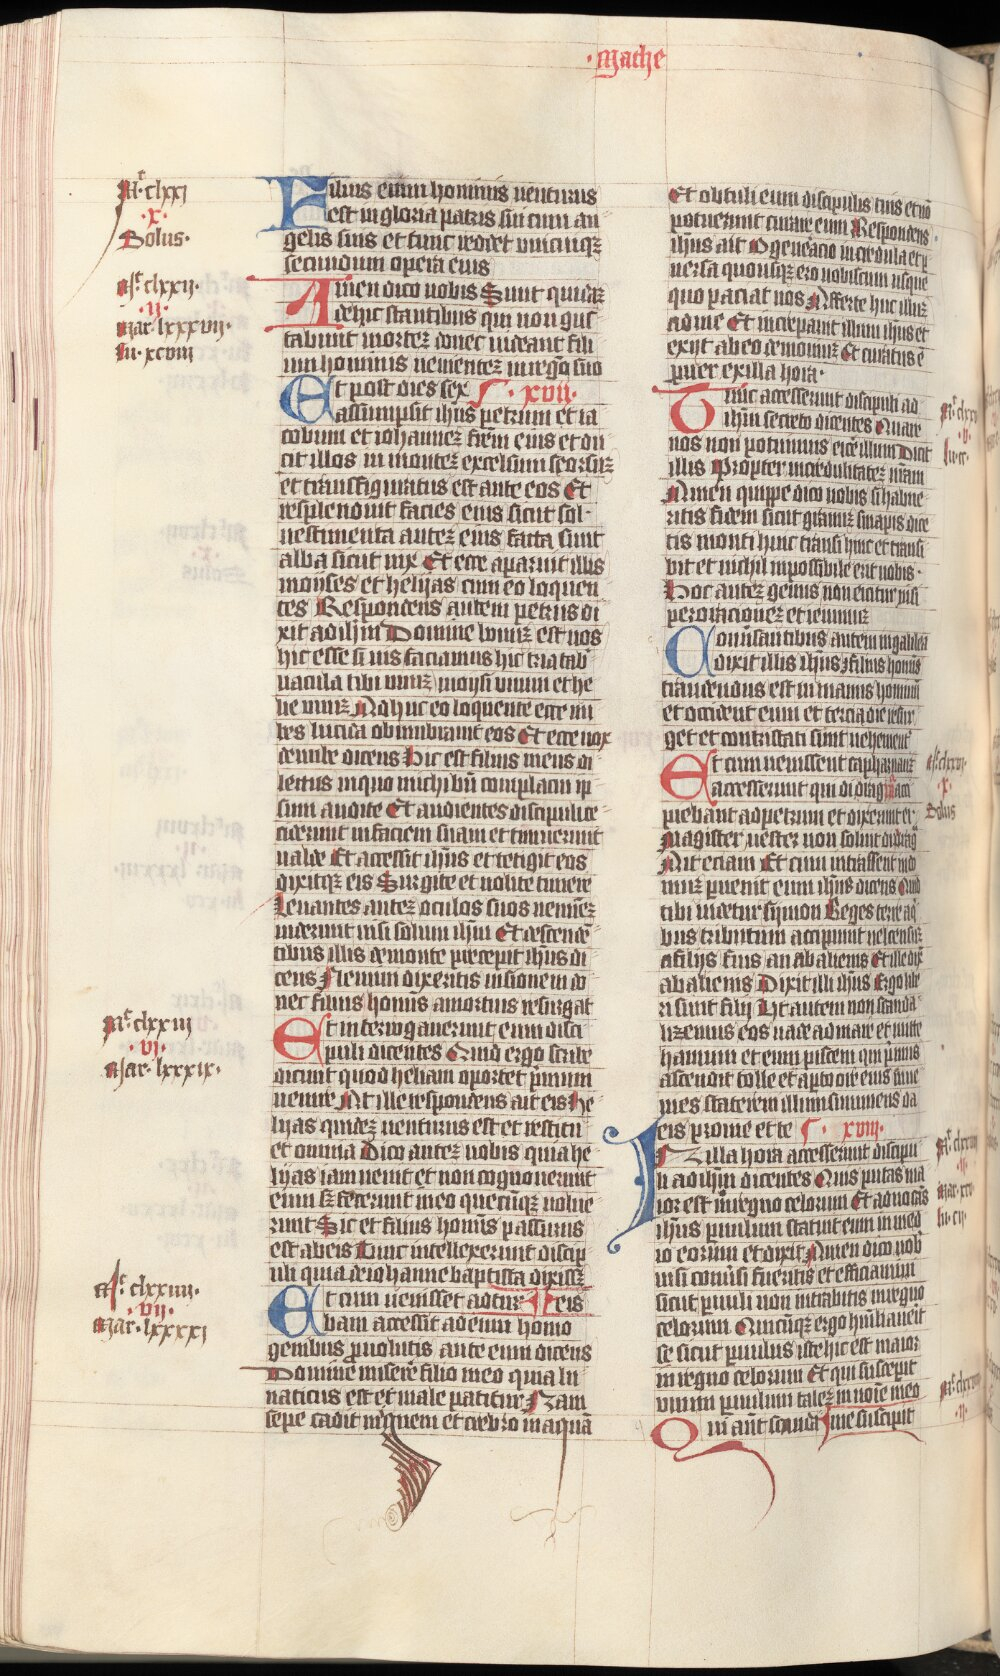 ·mathe
Mͭ·clxxi
·x·
Solus·
Mͭ·clxxii·
·ii·
Mar·lxxxvii·
lu·xcviii
Filius enim hominis uenturus
est in gloria patris sui cum an
gelis suis et tunc reddet unicuiqꝫ
secundum opera eius
Amen dico uobis Sunt quidaꝫ
dehic stantibus qui non gus
tabunt morteꝫ donec uideant fili
um hominis uementeꝫ in rego suo
Et post dies sex C· xvii·
assumpsit ihus petrum et ia
cobum et iohanneꝫ frem eius et du
cit illos in monteꝫ excelsum seorsuꝫ
et transfiguratus est ante eos Et
resplenduit facies eius sicut sol·
uestimenta auteꝫ eius facta sunt
alba sicut nix Et ecce aparuit illis
moyses et helyas cum eo loquen
tes Respondens autem petrus di
xit ad ihm Domine bonuꝫ est nos
hic esse si uis faciamus hic tria tab
nacula tibi unuꝫ moysi unum et he
lie unuꝫ Adhuc eo loquente ecce nu
bes lucida obumbrauit eos Et ecce uox
de nube dicens Hic est filius meus di
lectus in quo michi bn complacui ip
sum audite Et audientes discipuli ce
ciderunt in faciem suam et timuerunt
ualde Et accessit ihus et tetigit eos
dixitqꝫ eis Surgite et nolite timere
Leuantes auteꝫ oculos suos nemineꝫ
uiderunt nisi solum ihm Et descenden
tibus illis de monte precepit ihus di
cens Nemini dixeritis uisionem do
nec filius homis amortuis resurgat
Mͭ·clxxiii
·vi·
Mar·lxxxix·
Et interrogauerunt eum disci
puli dicentes Quid ergo scribe
dicunt quod heliam oportet primum
uenire At ille respondens ait eis he
lyas quideꝫ uenturus est et restitu
et omnia Dico auteꝫ uobis quia he
lyas iam uenit et non cognouerunt
eum sꝫ fecerunt in eo quecunqꝫ uolue
runt Sic et filius homis passurus
est ab eis Tunc intellexerunt discip
uli quia de iohanne baptista dixissꝫ
Mͭ·clxxiiii·
·vii·
Mar·lxxxxi
Et cum uenisset ad tur eis
bam accessit ad eum homo
genibus prouolutis ante eum dicens
Domine misere filio meo quia lu
naticus est et male patitur Nam
sepe cadit in ignem et crebro in aquam
Et obtuli eum discipulis tuis et non
potuerunt curare eum Respondens
ihus ait O generacio incredula et p
uersa quousqꝫ ero uobiscum usque
quo paciar uos Afferte huc illuꝫ
ad me Et increpauit illum ihus et
exiit ab eo demoniuꝫ Et curatus e
puer ex illa hora·
Tunc accesserunt discipuli ad
ihm secreto dicentes Quare
nos non potuimus eice illum Dicit
illis Propter incredulitateꝫ uram
Amen quippe dico uobis si habue
ritis fidem sicut granuꝫ sinapis dice
tis monti huic transi hinc et transi
bit et nichil inpossibile erit uobis·
Hoc auteꝫ genus non eicitur nisi
per oracioneꝫ et ieiuniuꝫ
Conuersantibus autem in galilea
dixit illis ihus filius homis
tradendus est in manus hominum
et occident eum et tercia die resur
get et contristati sunt uehementer
Et cum uenissent capharnauꝫ
accesserunt qui didragma acci
piebant ad petrum et dixerunt ei
Magister uester non soluit didrag
Ait eciam Et cum intrassent in do
muꝫ preuenit eum ihus dicens Quid
tibi uidetur symon Reges terre a q
bus tributum accipiunt uel censuꝫ
a filijs suis an ab alienis Et ille dix
ab alienis Dixit illi ihus Ergo libe
ri sunt filij Ut autem non scanda
lizemus eos uade ad mare et mitte
hamum et eum piscem qui primus
ascendit tolle et aperto ore eius inue
nies staterem illum sumens da
eis pro me et te C· xviii·
In illa hora accesserunt discipu
li ad ihm dicentes Quis putas ma
ior est in regno celorum Et aduocans
ihus paruulum statuit eum in med
io eorum et dixit Amen dico uob
nisi conuersi fueritis et efficiamini
sicut paruuli non intrabitis in regno
celorum Quicunqꝫ ergo humiliauerit
se sicut paruulus iste hic est maior
in regno celorum Et qui susceperit
unum paruulum taleꝫ in noie meo
Qui aut scanda me suscipit
Solus